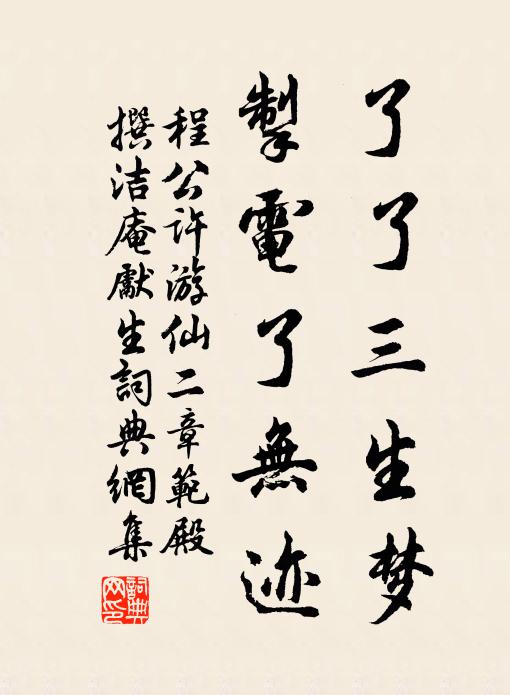 了了三生梦
掣電了無迹
程公许游仙二章範殿
撰洁庵獻生詞典網集
詞典网印